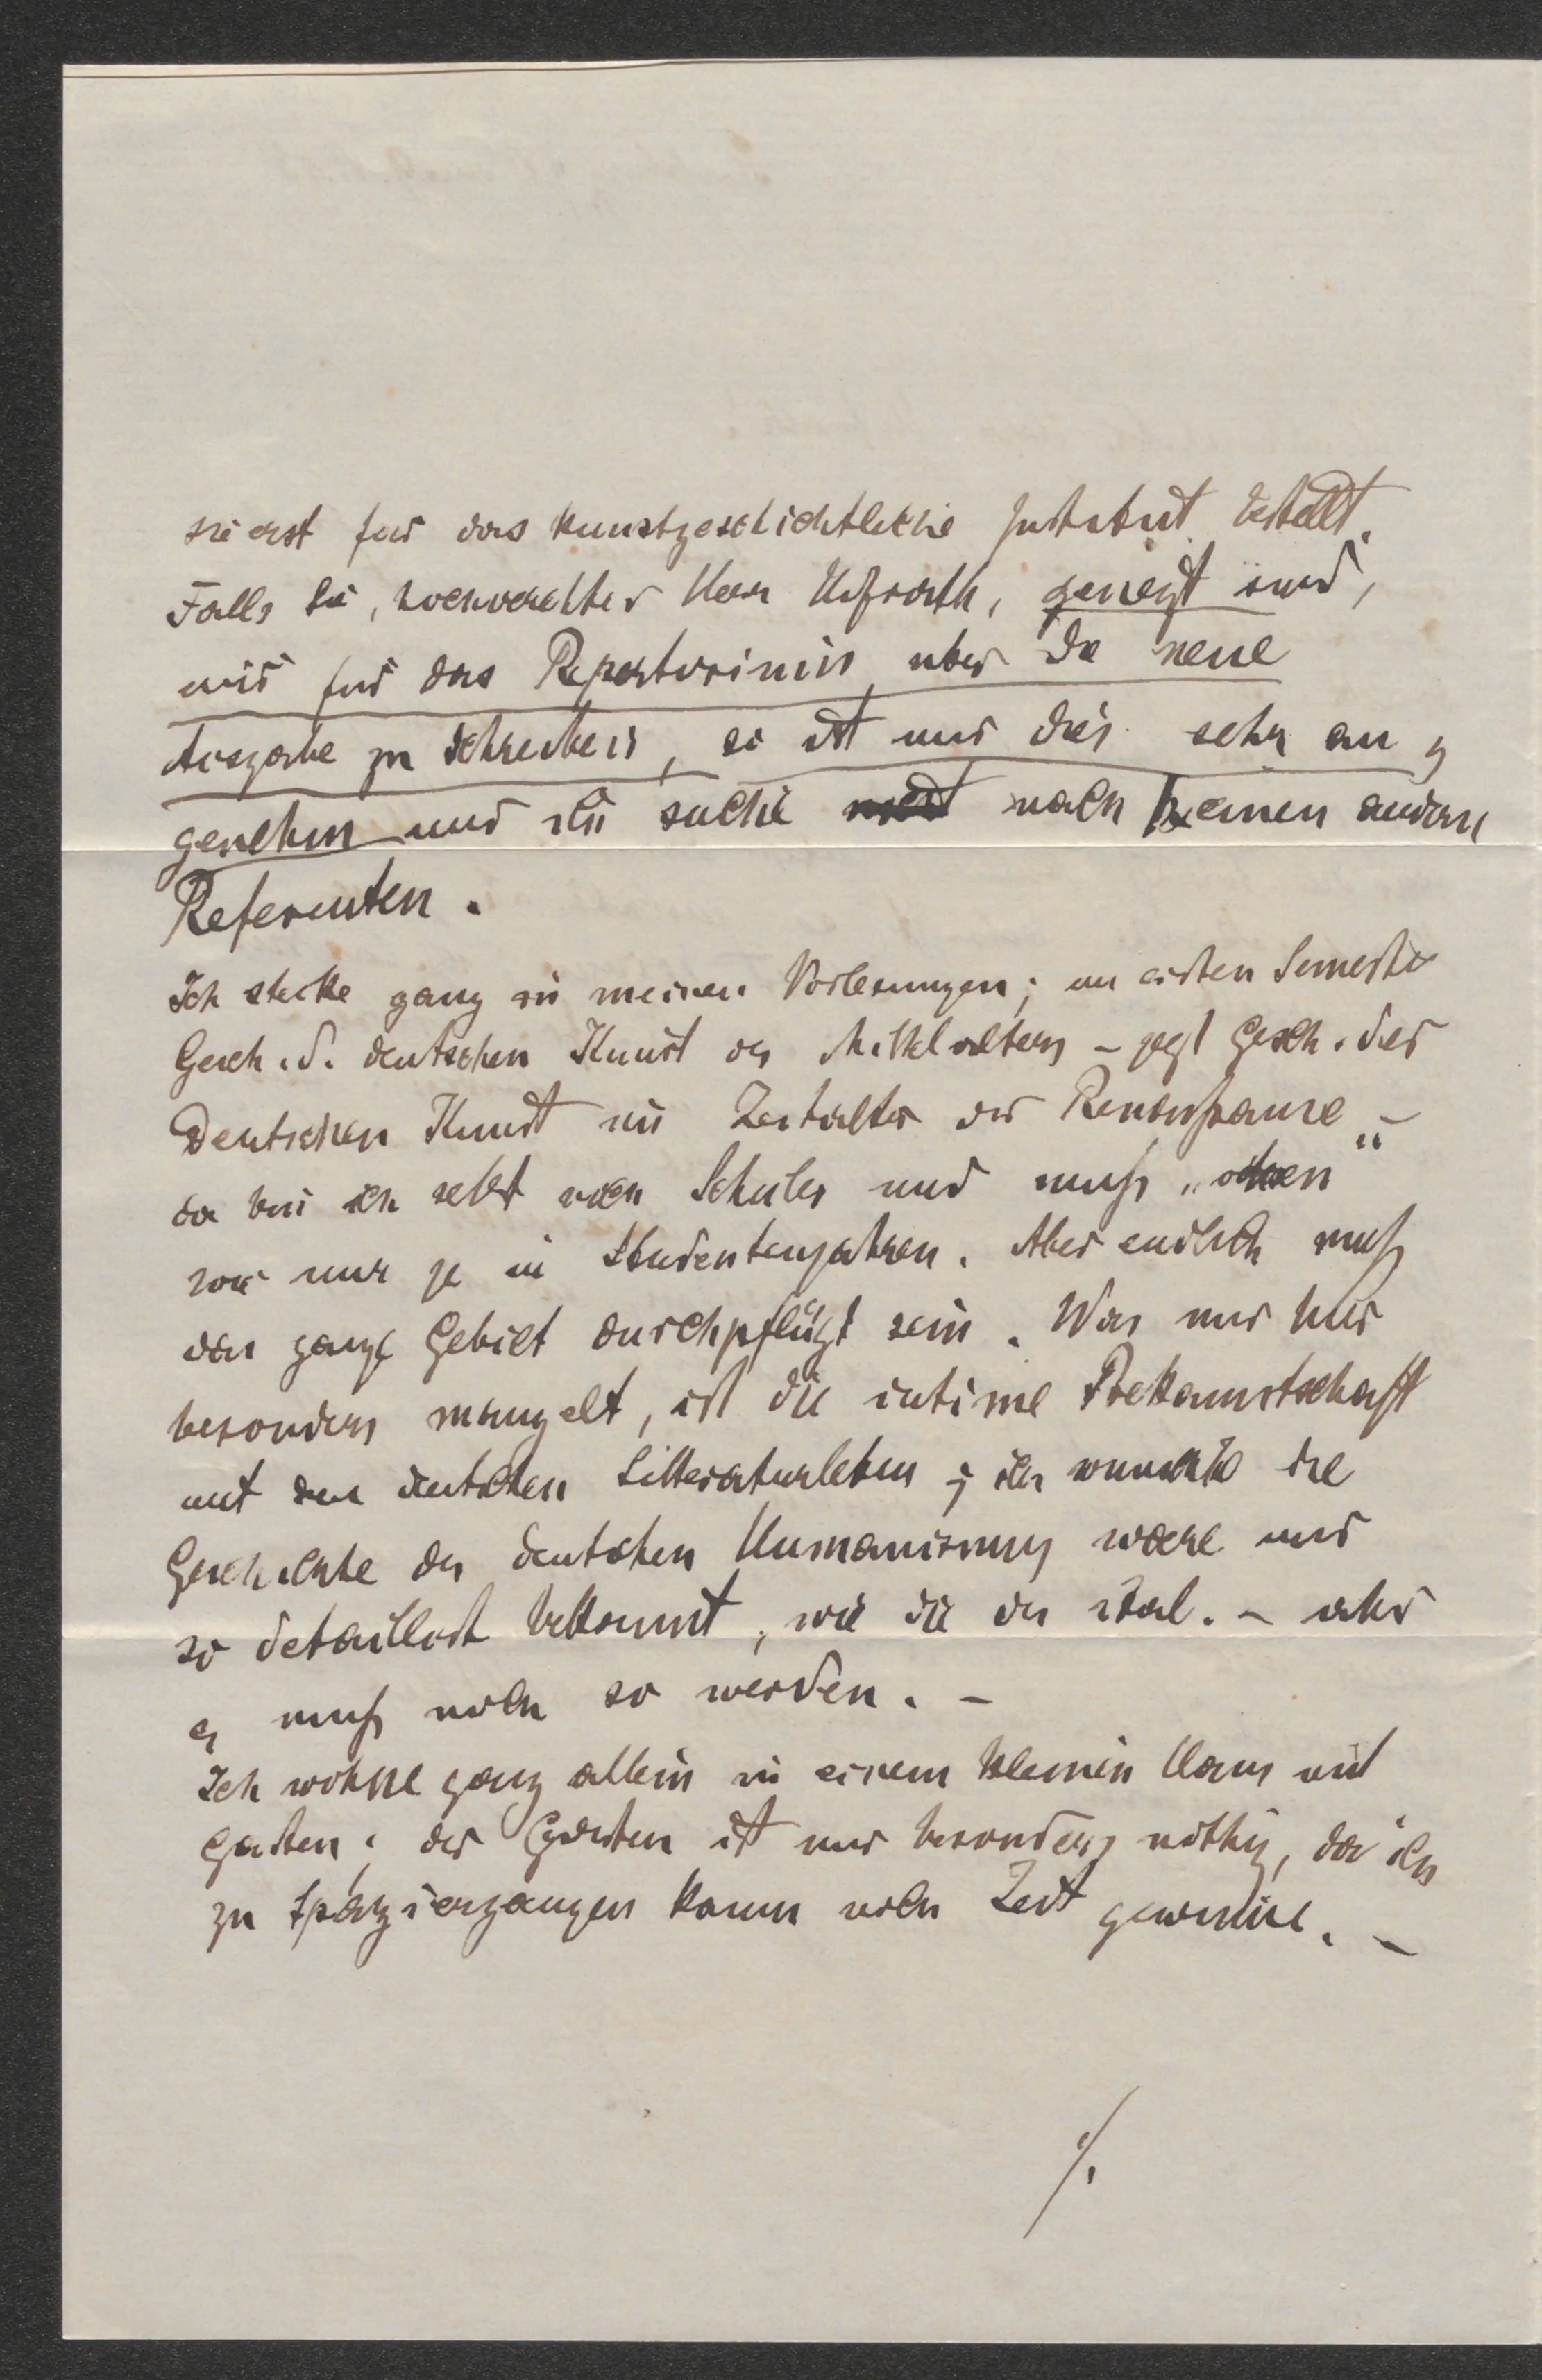 sie erst für das kunstgeschichtliche Institut bestellt.
Falls Sie, hochverehrter Herr Hofrath, geneigt sind,
mir für das Repertorium über die neue
Ausgabe zu schreiben, so ist mir dies sehr an
genehm und ich suche nach keinen andern
Referenten.
Ich stecke ganz in meinen Vorlesungen; im ersten Semester
Gesch. d. deutschen Kunst des Mittelalters – jezt Gesch. der
Deutschen Kunst im Zeitalter der Renaissance –
da bin ich selbst noch Schüler und muß „ochsen“
wie nur je in Studentenjahren. Aber endlich muß
das ganze Gebiet durchpflügt sein. Was mir hier
besonders mangelt, ist die intime Bekanntschaft
mit dem deutschen Litteraturleben; ich wünschte die
Geschichte des deutschen Humanismus wäre mir
so detaillirt bekannt, wie die des ital. – aber
es muß noch so werden. –
Ich wohne ganz allein in einem kleinen Haus mit
Garten; der Garten ist mir besonders nöthig, da ich
zu Spaziergängen kaum noch Zeit gewinne. –
./.